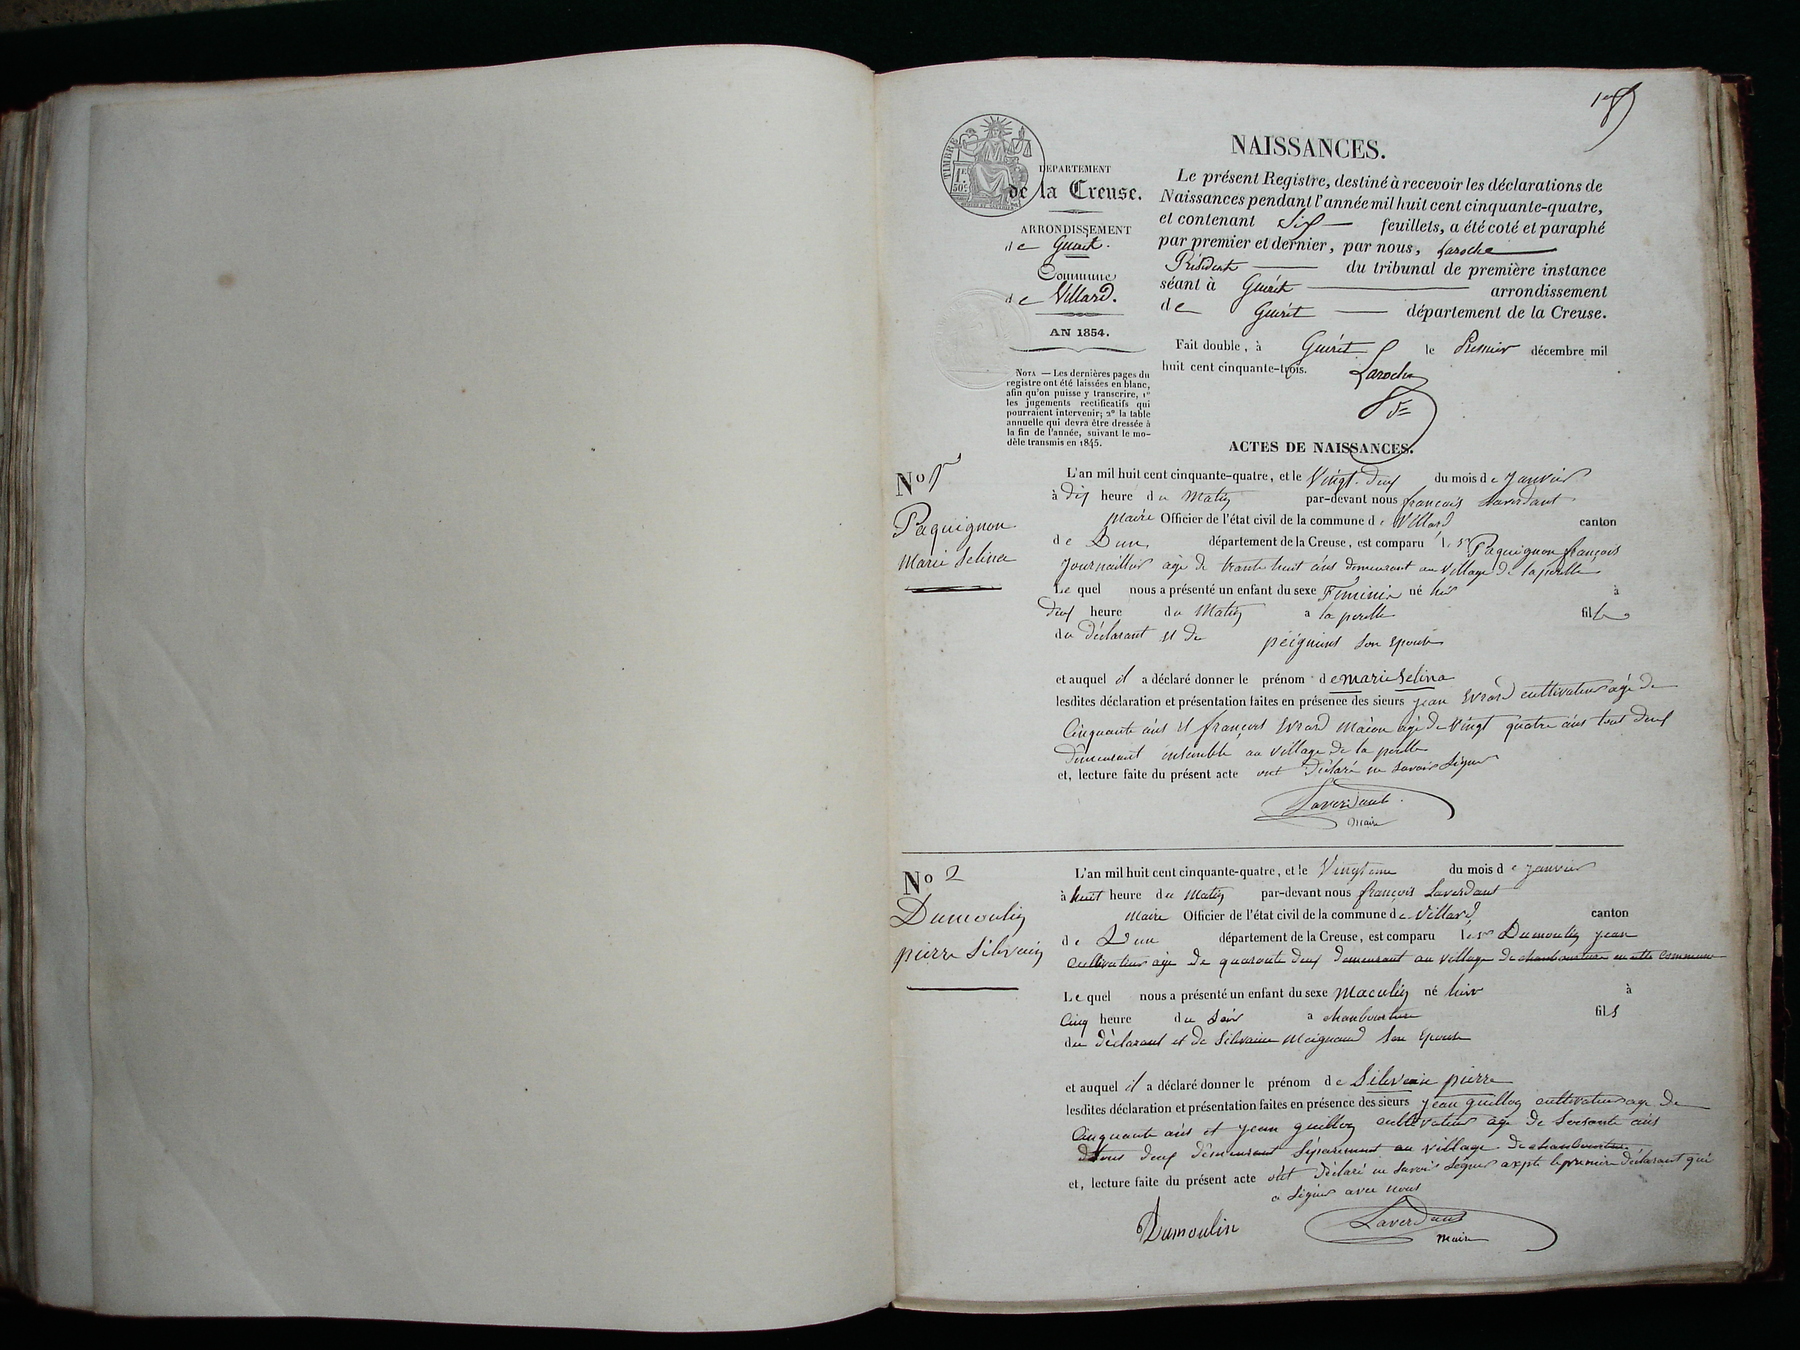 1er
TIMBRE
1F.
50c.
DÉPARTEMENT
de la Creuse.
ARRONDISSEMENT
de Guéret.
Commune
de Villard.
AN 1854.
NOTA — Les dernières pages du
registre ont été laissées en blanc,
afin qu'on puisse y transcrire, 1°
les jugements rectificatifs qui
pourraient intervenir; 2° la table
annuelle qui devra être dressée à
la fin de l'année, suivant le mo-
dèle transmis en 1845.
NAISSANCES.
Le présent Registre, destiné à recevoir les déclarations de
Naissances pendant l'année mil huit cent cinquante-quatre,
et contenant Six feuillets, a été coté et paraphé
par premier et dernier, par nous, Laroche
Président du tribunal de première instance
séant à Guérêt arrondissement
de Guérêt département de la Creuse.
Fait double, à Guérêt le Premier décembre mil
huit cent cinquante-trois.
Laroche
ACTES DE NAISSANCES.
No 1er
Paquignon
Marie Selina
L'an mil huit cent cinquante-quatre, et le Vingt deux du mois de Janvier
à dix heure du Matin par-devant nous françois Laverdant
Maire Officier de l'état civil de la commune de Villard canton
de Dun département de la Creuse, est comparu le sr Paquignon françois
Journaillier age de trante huit ans demeurant au village de la perelle
Le quel nous a présenté un enfant du sexe Feminin né hier à
deux heure du Matin a la perelle fille
du déclarant et de peignent son epouse
et auquel il a déclaré donner le prénom de marie Selina
lesdites déclaration et présentation faites en présence des sieurs jean Evrard cultivateur agé de
Cinquante ans et françois Evrard Macon agé de Vingt quatre ans tous deux
demeurant ensemble au village de la perelle
et, lecture faite du présent acte ont déclaré ne savoir signer
Laverdant
Maire
No 2
Dumoulin
pierre Silvain
L'an mil huit cent cinquante-quatre, et le Vingt une du mois de Janvier
à huit heure du Matin par-devant nous françois Laverdant
Maire Officier de l'état civil de la commune de Villard canton
de Dun département de la Creuse, est comparu le sr Dumoulin jean
cultivateur age de quarante deux demeurant au village de chanbourture en cette commune
Le quel nous a présenté un enfant du sexe Maculin né hier à
Cinq heure du Soir a chanbourture fils
du déclarant et de Silvaine Meignaud son Epouse
et auquel il a déclaré donner le prénom de Silvain pierre
lesdites déclaration et présentation faites en présence des sieurs jean guillon cultivateur age de
Cinquante ans et jean guillon cultivateur age de Soisante ans
tous deux demeurant séparement au village de chanbourture
et, lecture faite du présent acte ont déclaré ne savoir signer axpté le premier déclarant qui
a signer avec nous
Dumoulin
Laverdant
Maire